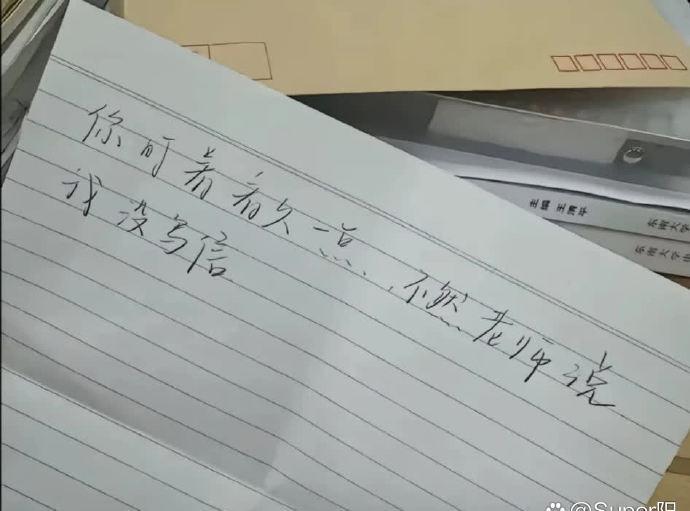 你盯着看久一点，不然老师说
我没写信
主编 王清平
东南大学
东南大学出
@Super阳